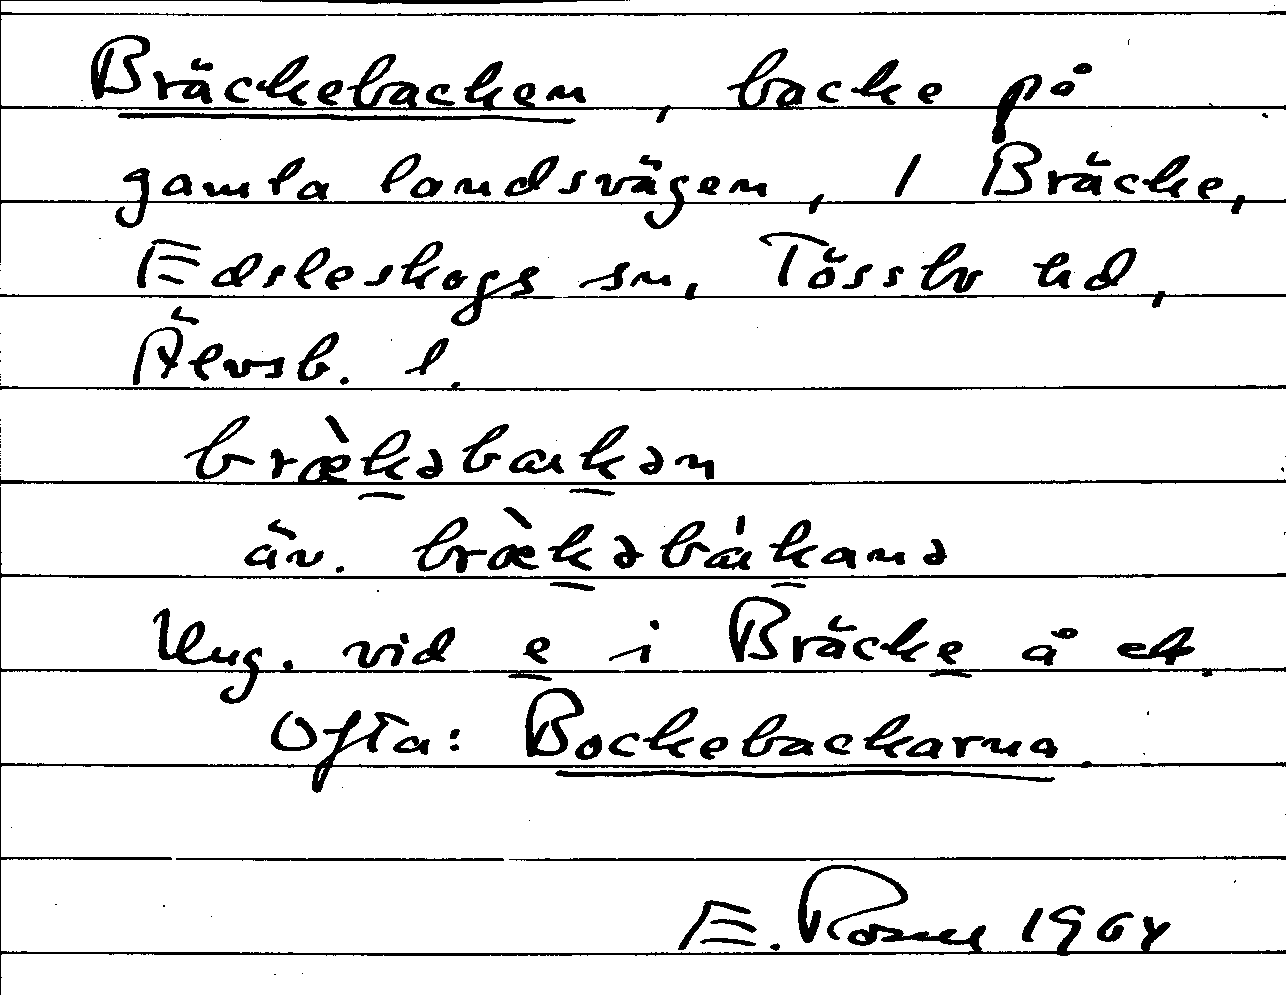 Bräckebacken, backe på
gamla landsvägen, 1 Bräcke,
Edsleskogs sn, Tössbo hd,
Älvsb. l.
bræ̀kəbakən
äv. bræ̀kəbákanə
Ung. vid e i Bräcke å ek.
Ofta: Bockebackarna.
E. Rosell 1964